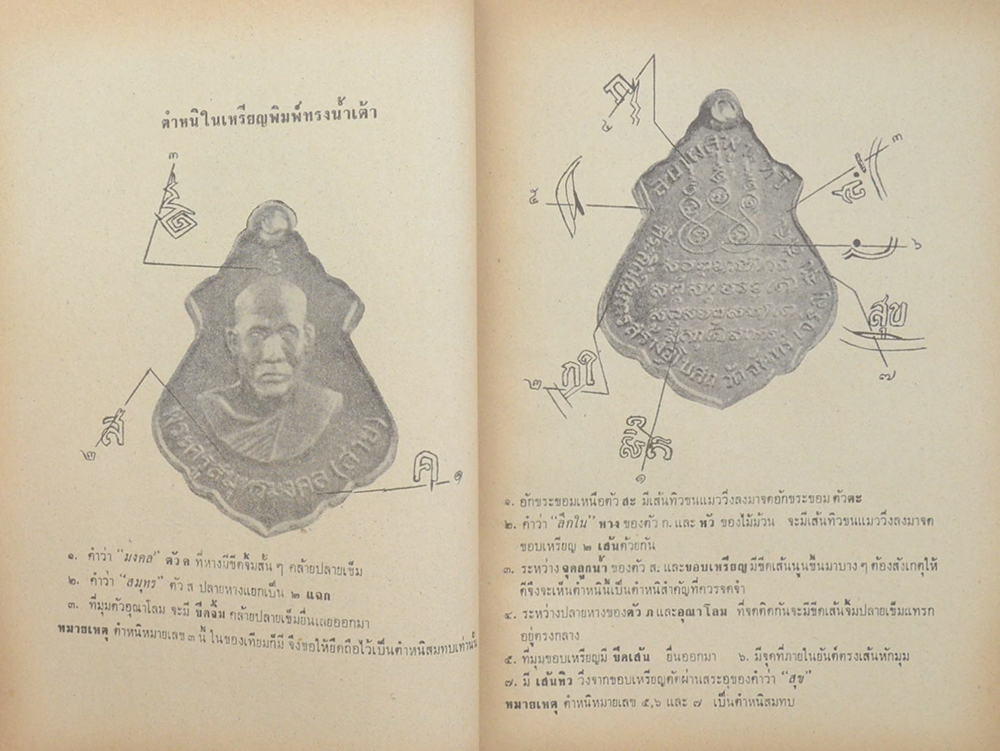 ตำหนิในเหรียญพิมพ์ทรงน้ำเต้า
๓
๒
ส
ค
๑
พระครูสมุทรมงคล (สาย)
๑. คำว่า "มงคล" ตัว ค ที่หางมีขีดจิ้มสั้น ๆ คล้ายปลายเข็ม
๒. คำว่า "สมุทร" ตัว ส ปลายหางแยกเป็น ๒ แฉก
๓. ที่มุมตัวอุณาโลม จะมี ขีดจิ้ม คล้ายปลายเข็มยื่นเฉยออกมา
หมายเหตุ ตำหนิหมายเลข ๓ นี้ ในของเทียมก็มี จึงขอให้ยึดถือไว้เป็นตำหนิสมทบเท่านั้น
๔
๓
๕
๖
สุข
๗
๒
๑
๑. อักขระขอมเหนือตัว สะ มีเส้นทิวขนแมววิ่งลงมาจดอักขระขอม ตัวตะ
๒. คำว่า "ลึกใน" หาง ของตัว ก. และ หัว ของไม้ม้วน จะมีเส้นทิวขนแมววิ่งลงมาจด
ขอบเหรียญ ๒ เส้นด้วยกัน
๓. ระหว่าง จุดลูกน้ำ ของตัว ส. และขอบเหรียญ มีขีดเส้นนูนขึ้นมาบาง ๆ ต้องสังเกตุให้
ดีจึงจะเห็นตำหนินี้เป็นตำหนิสำคัญที่ควรจดจำ
๔. ระหว่างปลายหางของตัว ภ และอุณาโลม ที่จดติดกันจะมีขีดเส้นจิ้มปลายเข็มแทรก
อยู่ตรงกลาง
๕. ที่มุมขอบเหรียญมี ขีดเส้น ยื่นออกมา ๖. มีจุดที่ภายในยันต์ตรงเส้นหักมุม
๗. มี เส้นทิว วิ่งจากขอบเหรียญตัดผ่านสระอุของคำว่า "สุข"
หมายเหตุ ตำหนิหมายเลข ๕,๖ และ ๗ เป็นตำหนิสมทบ